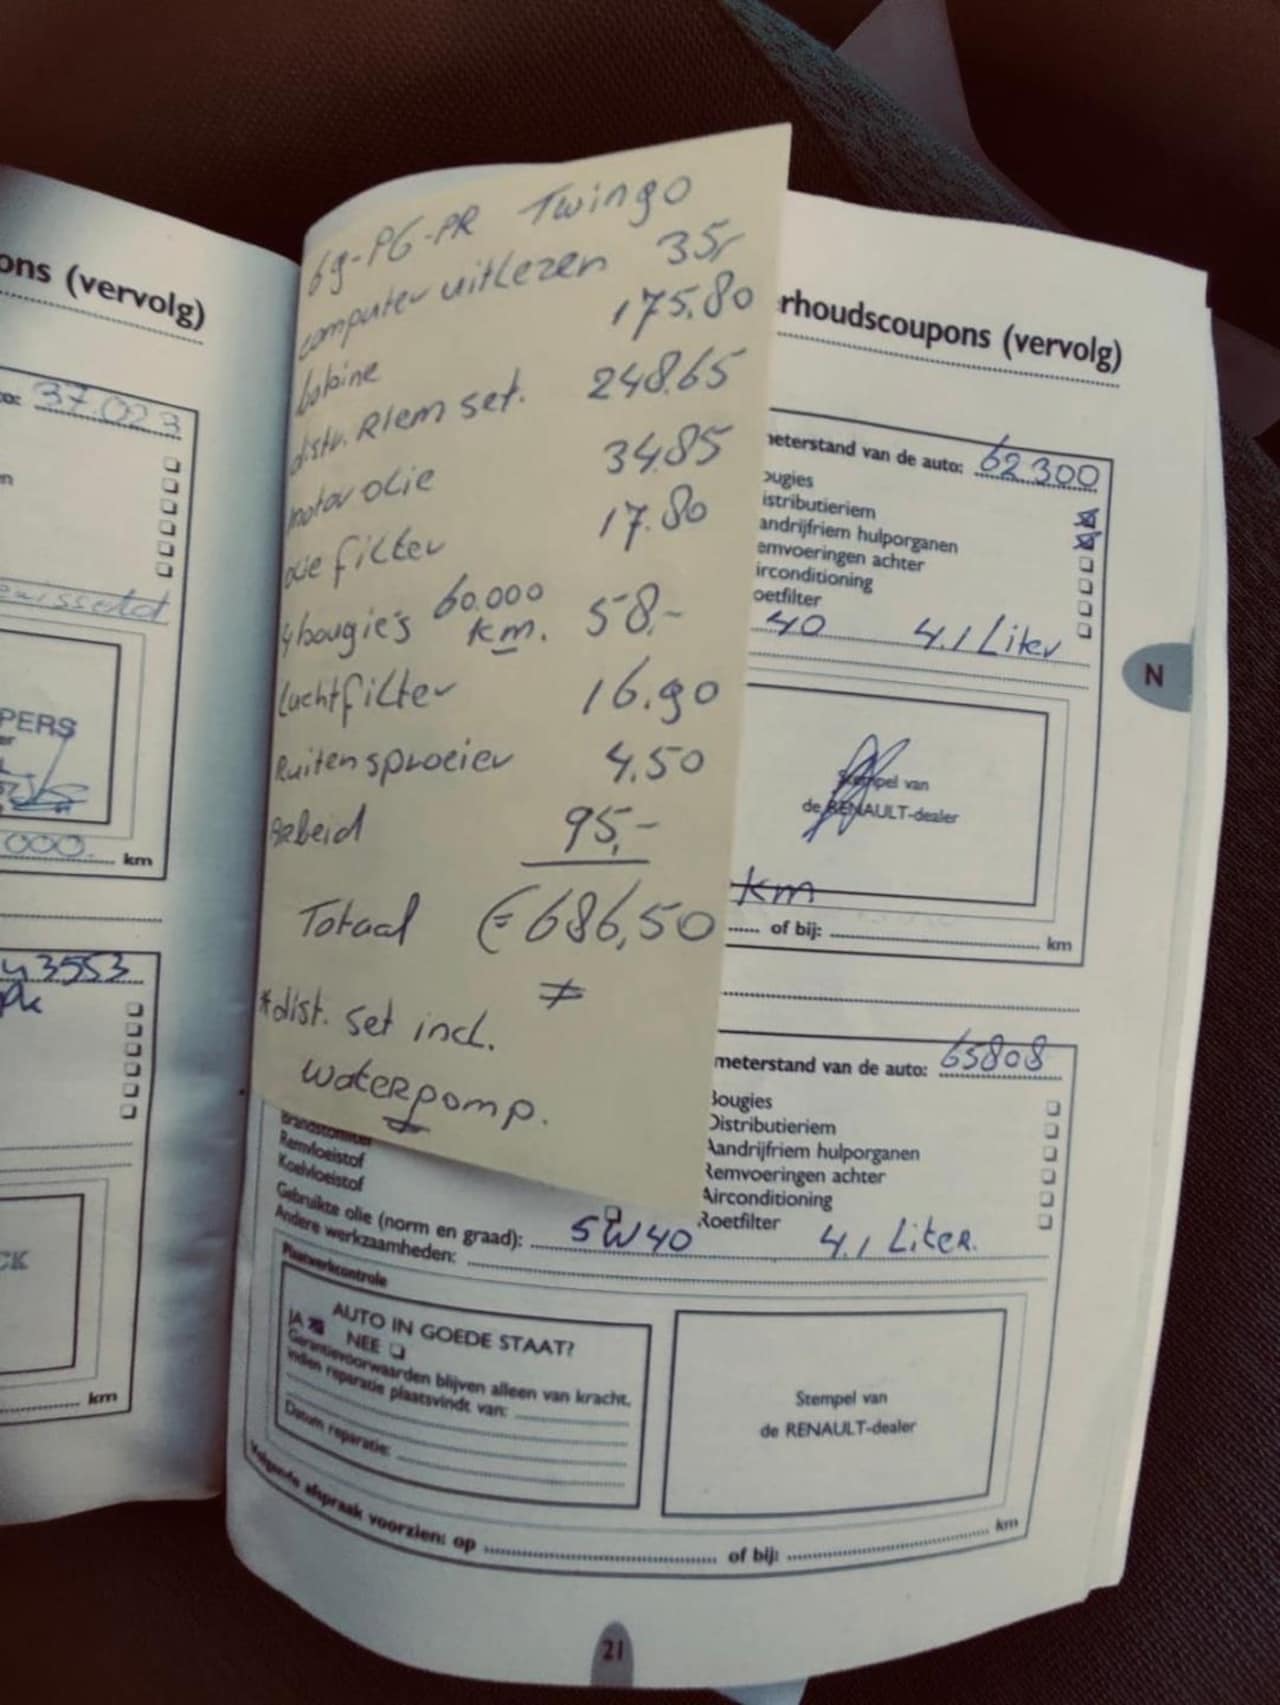 ons (vervolg)
37.023
PERS
000. km
43553
CK
km
69-PG-PR Twingo
computer uitlezen 35,-
bobine 175.80
distr. Riem set. 248.65
motor olie 34.85
olie filter 17.80
4 bougie's 60.000 km. 58,-
luchtfilter 16.90
Ruitensproeier 4.50
Arbeid 95,-
Totaal € 686,50
*dist. set incl.
waterpomp.
rhoudscoupons (vervolg)
meterstand van de auto: 62300
ougies
istributieriem
andrijfriem hulporganen
emvoeringen achter
irconditioning
oetfilter
40 4.1 Liter
N
Stempel van
de RENAULT-dealer
km
of bij: km
meterstand van de auto: 65808
Bougies
Distributieriem
Aandrijfriem hulporganen
Remvoeringen achter
Airconditioning
Roetfilter
Brandstoffilter
Remvloeistof
Koelvloeistof
Gebruikte olie (norm en graad): 5W40 4.1 Liter.
Andere werkzaamheden:
Plaatwerkcontrole
AUTO IN GOEDE STAAT?
JA NEE
Garantievoorwaarden blijven alleen van kracht,
indien reparatie plaatsvindt van:
Datum reparatie:
Stempel van
de RENAULT-dealer
Volgende afspraak voorzien: op of bij: km
21